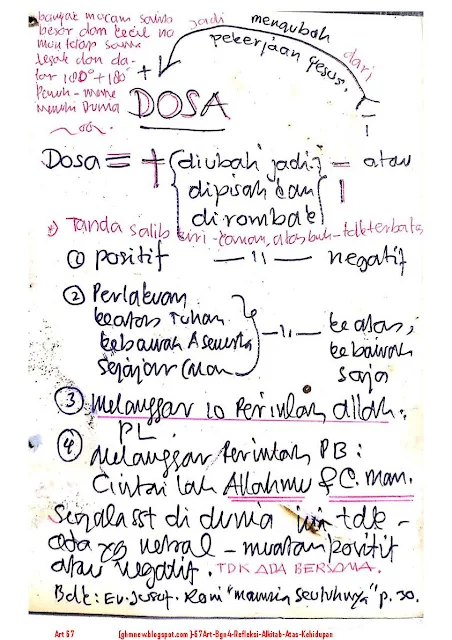 banyak macam salib
besar dan kecil
tegak dan da-
tar 180° + 180°
Penuh - meme
nuhi Dunia
jadi mengubah dari
pekerjaan Yesus.
+
DOSA
Dosa ≡ + (diubah jadi?) — atau
dipisahkan |
dirombak
*) Tanda salib kiri-kanan, atas-bwh - tdk terbatas
① positif — 11 — negatif
② Perlakuan
keatas Tuhan
kebawah Asemesta — 11 — keatas,
sejajar kebawah
saja
③ Melanggar 10 Perintah Allah.
PL.
④ Melanggar Perintah PB:
Cintailah Allahmu & C. man.
Segala sst di dunia ini tdk -
ada yg netral - muatan positif
atau negatif. TDK ADA BERSAMA.
Bdk: Ev. Jusuf. Roni "manusia seutuhnya" p. 30.
Art 67 [ghmnew.blogspot.com]-67Art-Bgn4-Refleksi-Alkitab-Atas-Kehidupan